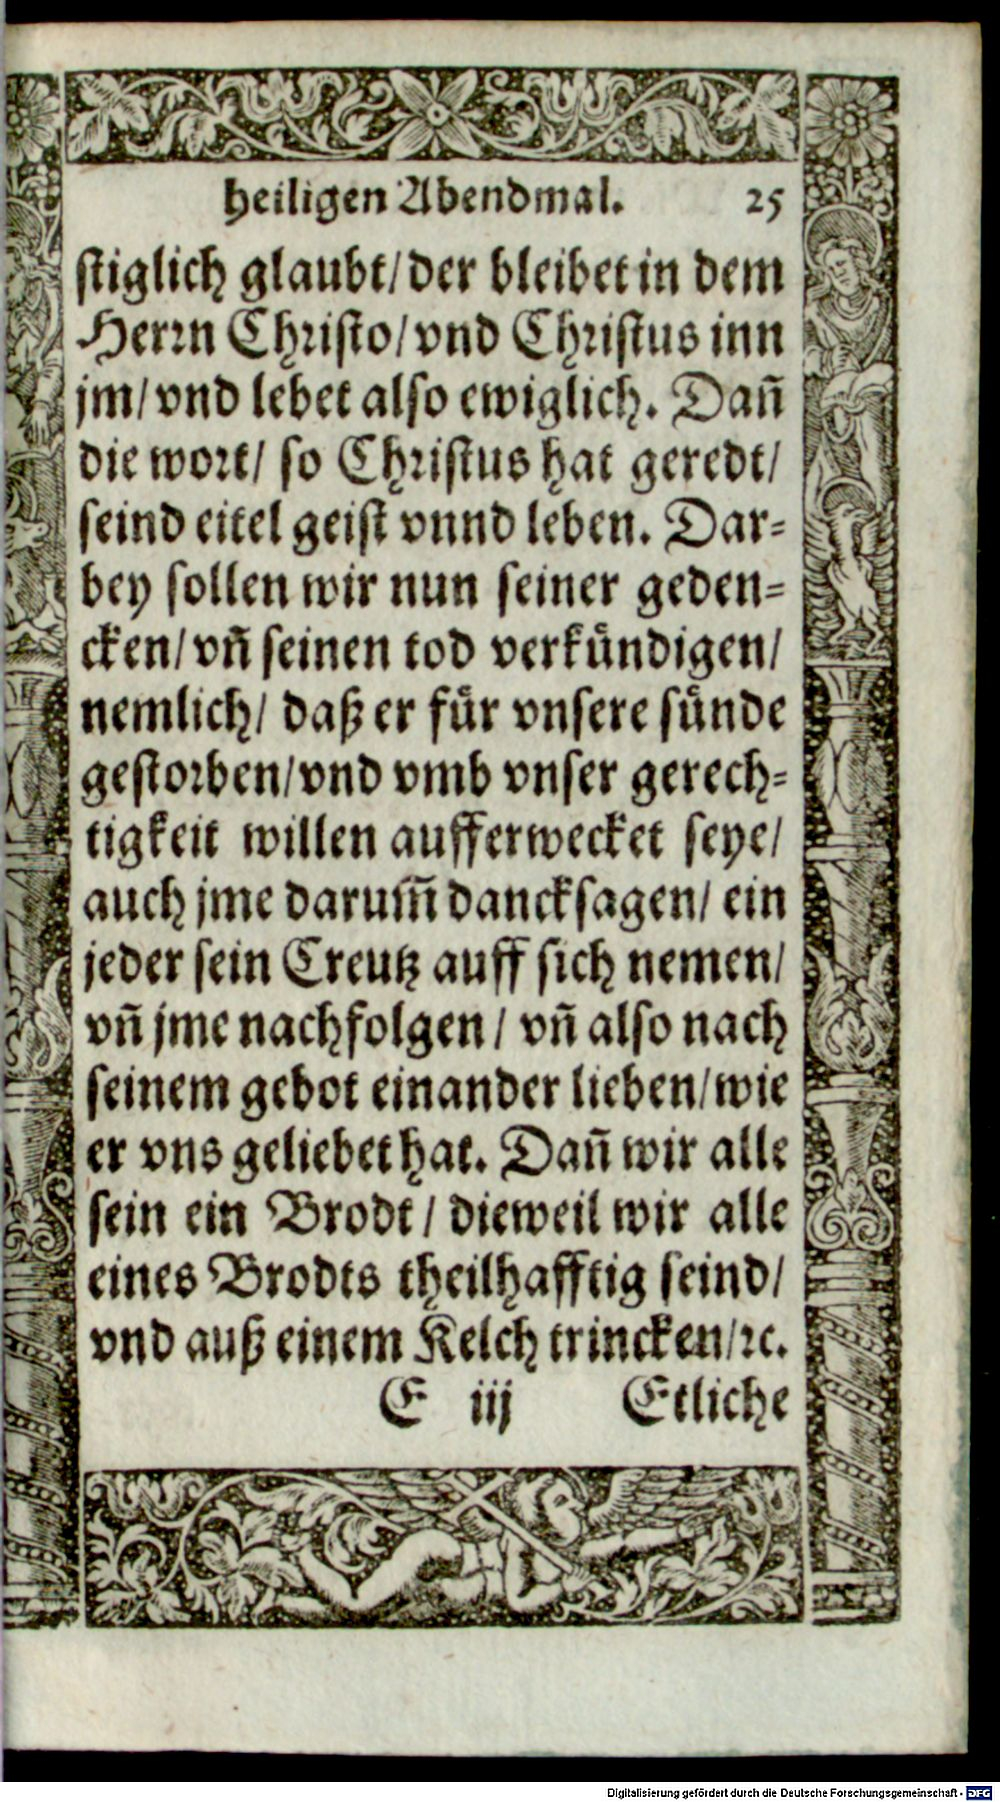 heiligen Abendmal. 25
stiglich glaubt/ der bleibet in dem
Herrn Christo/ vnd Christus inn
jm/ vnd lebet also ewiglich. Dañ
die wort/ so Christus hat geredt/
seind eitel geist vnnd leben. Dar=
bey sollen wir nun seiner geden=
cken/ vñ seinen tod verkündigen/
nemlich/ daß er für vnsere sünde
gestorben/ vnd vmb vnser gerech=
tigkeit willen aufferwecket seye/
auch jme darum̃ dancksagen/ ein
jeder sein Creutz auff sich nemen/
vñ jme nachfolgen/ vñ also nach
seinem gebot einander lieben/ wie
er vns geliebet hat. Dañ wir alle
sein ein Brodt/ dieweil wir alle
eines Brodts theilhafftig seind/
vnd auß einem Kelch trincken/ ꝛc.
E iij Etliche
Digitalisierung gefördert durch die Deutsche Forschungsgemeinschaft - DFG